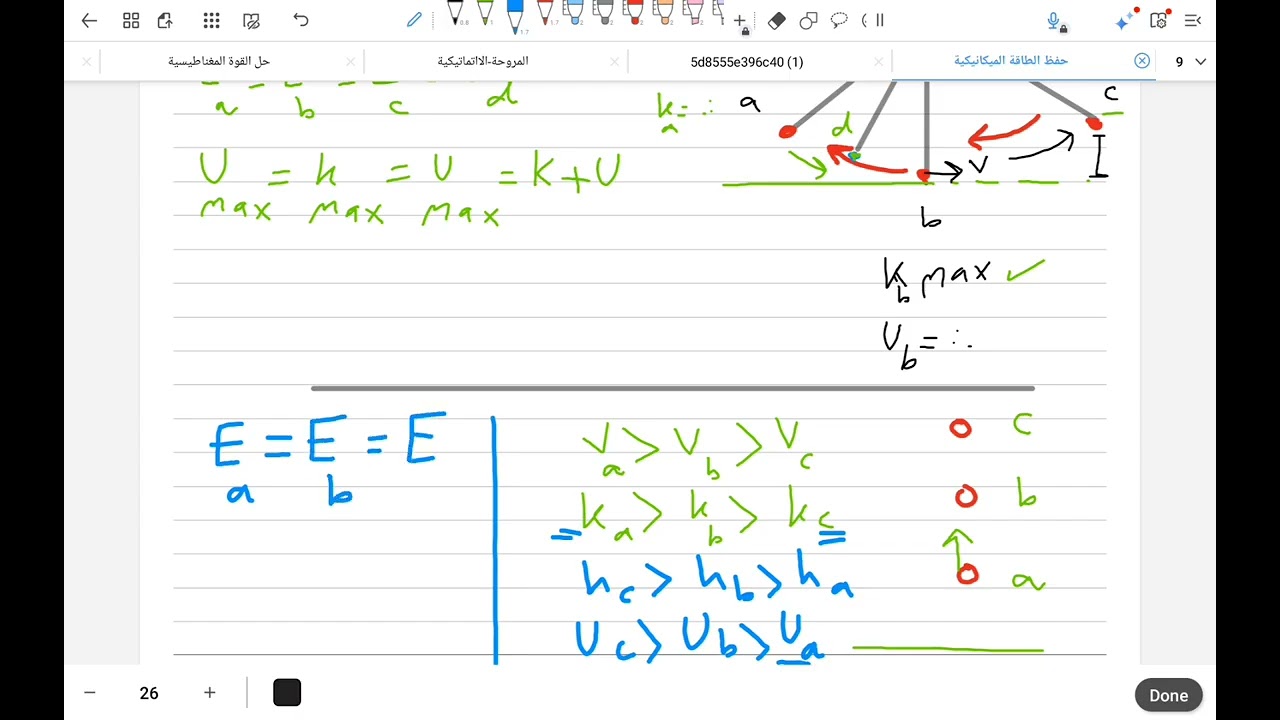 حفظ الطاقة الميكانيكية
5d8555e396c40 (1)
المروحة-الااتماتيكية
حل القوة المغناطيسية
9
a b c d
k_a = ∴ a
d
c
v
b
U = k = U = K + U
max max max
k_b max ✓
U_b = ∴
E_a = E_b = E
v_a > v_b > v_c
k_a > k_b > k_c
h_c > h_b > h_a
U_c > U_b > U_a
c
b
a
26
Done